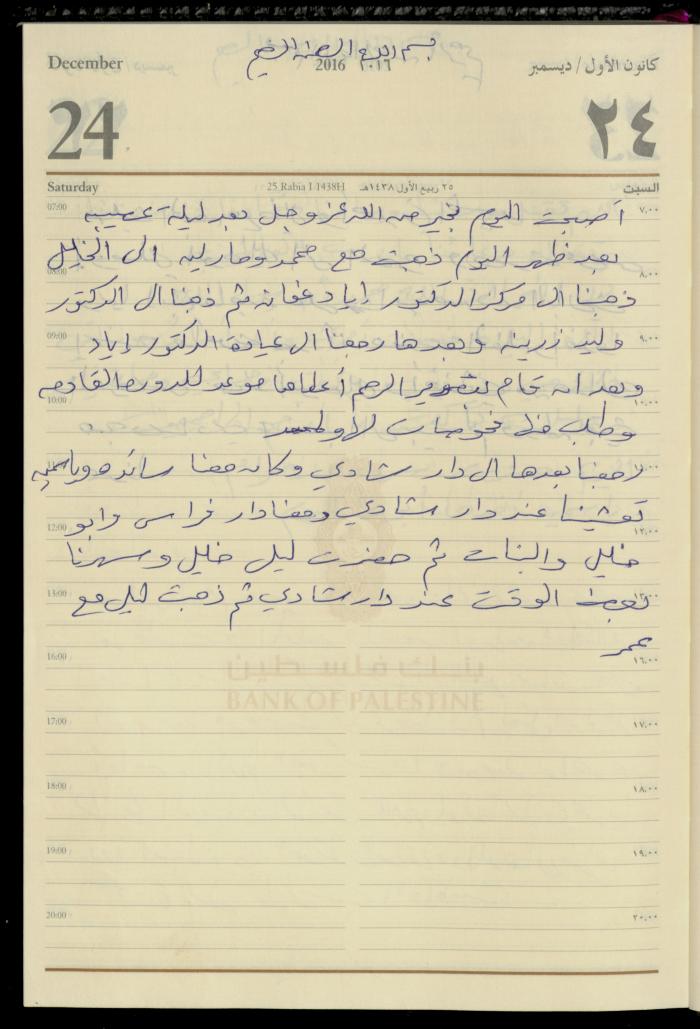 بسم الله الرحمن الرحيم
December
2016 ٢٠١٦
كانون الأول / ديسمبر
24
٢٤
Saturday
25 Rabia I 1438H
٢٥ ربيع الأول ١٤٣٨هـ
السبت
07:00 ٧,٠٠
أصبحت اليوم بخير من الله عز وجل بعد ليلة عصيبه
بعد ظهر اليوم ذهبت مع محمد ومارلين الى الخليل
08:00 ٨,٠٠
ذهبنا ال مركز الدكتور إياد ثم ذهبنا ال الدكتور
09:00 ٩,٠٠
وليد زرينه وبعدها رجعنا ال عيادة الدكتور إياد
وبعد ان قام الرحم أعطاها موعد للدوره القادمه
10:00 ١٠,٠٠
وطلب فحوصات
رجعنا بعدها ال دار شادي وكان معنا سائده وياسمين
تعشينا عند دار شادي ومعنا دار فراس وابو
12:00 ١٢,٠٠
خليل والبنات ثم حضرت ليل خليل وسهرنا
13:00 ١٣,٠٠
بعض الوقت عند دار شادي ثم ذهبت ليل مع
عمر
16:00 ١٦,٠٠
بنك فلسطين
BANK OF PALESTINE
17:00 ١٧,٠٠
18:00 ١٨,٠٠
19:00 ١٩,٠٠
20:00 ٢٠,٠٠